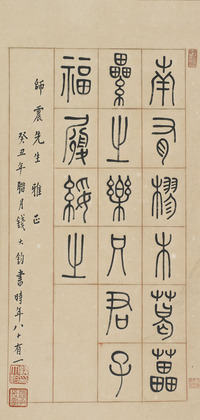 南有樛木葛藟
纍之樂只君子
福履綏之
師震先生雅正
癸丑年腊月錢大鈞書時年八十有一